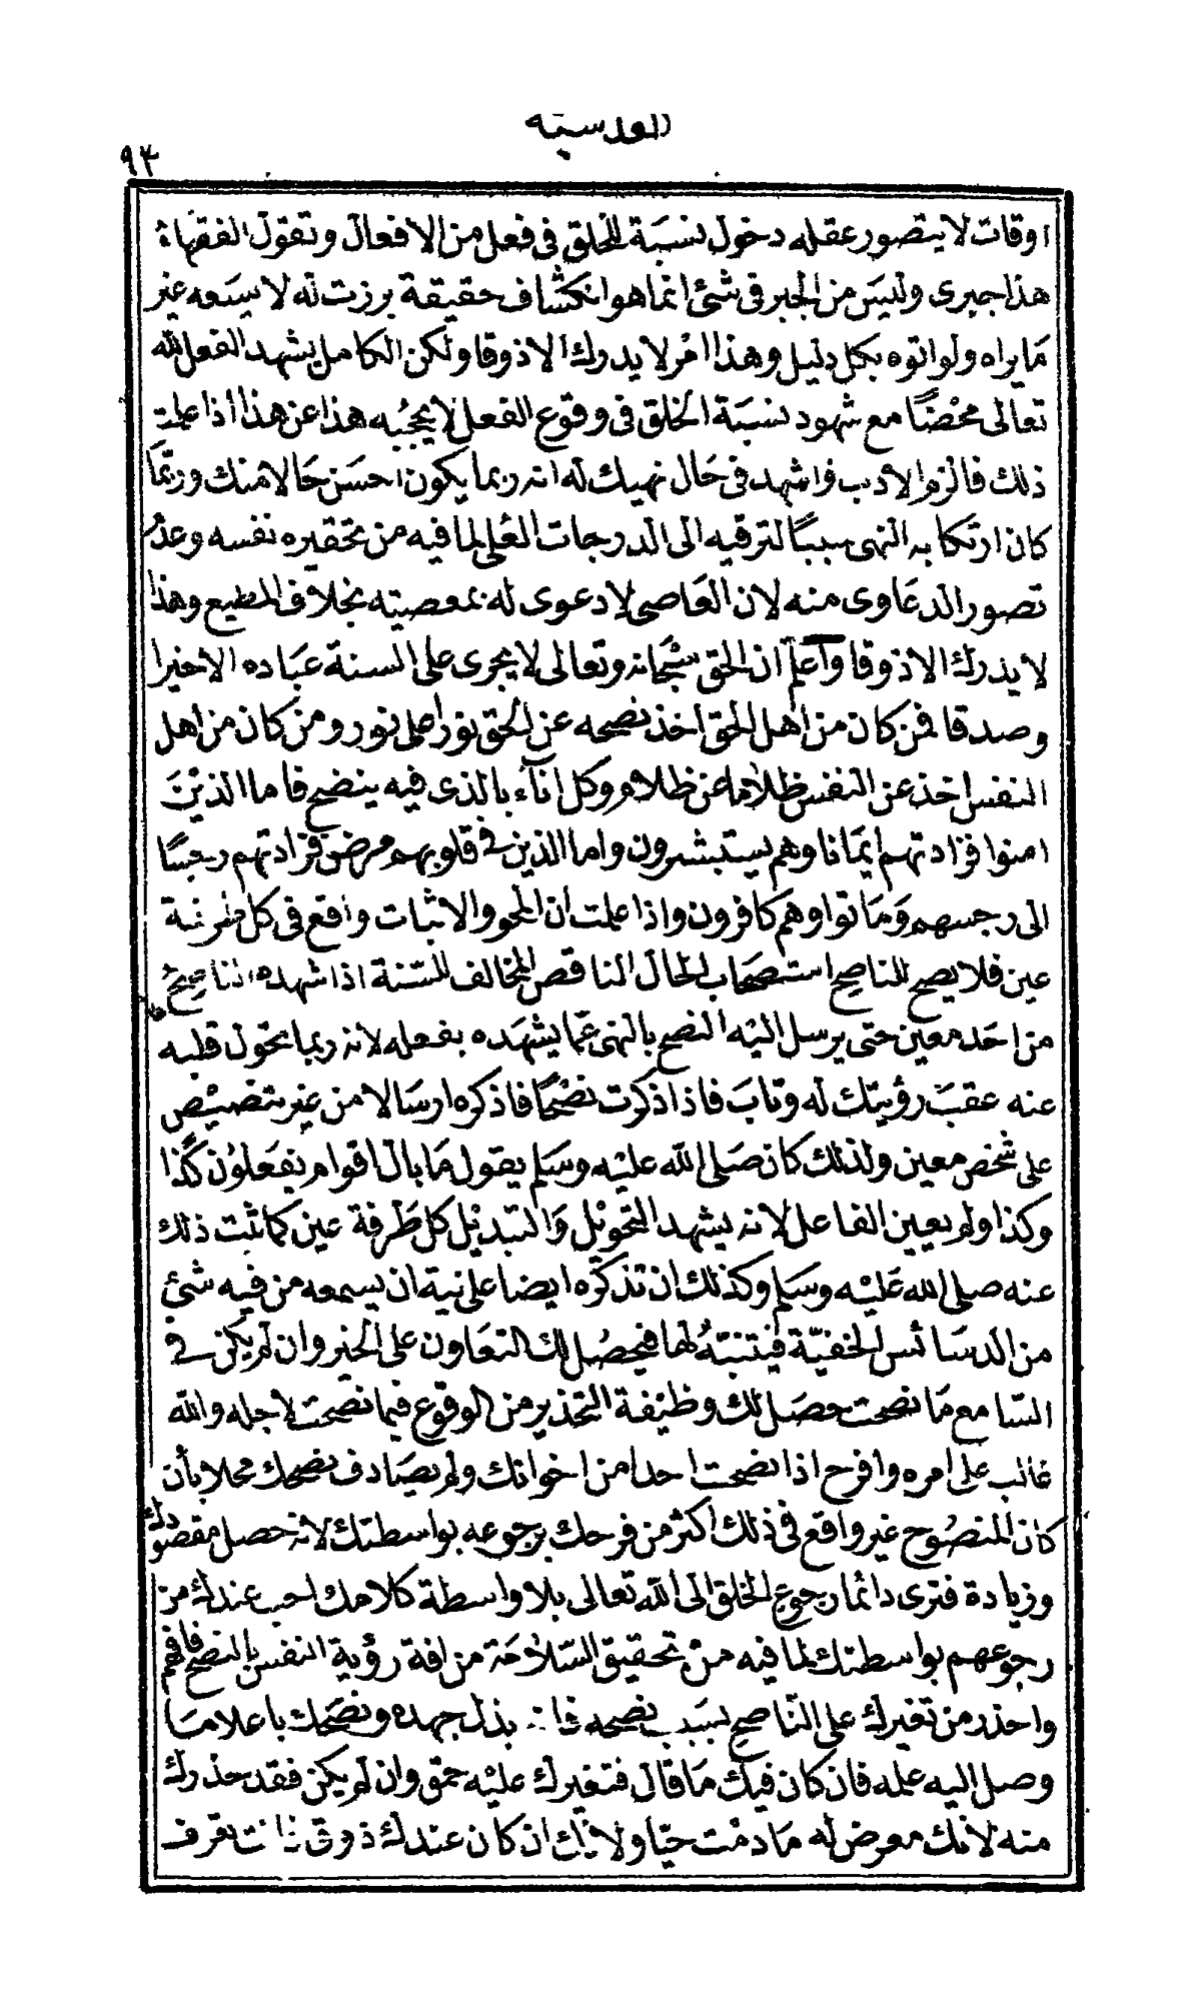 القدسيّه
٩٣
اوقات لا يتصور عقله دخول نسبة للخلق فى فعل من الافعال وتقول الفقهاء
هذا جبرى وليس من الجبر فى شئ انما هو انكشاف حقيقة برزت له لا يسعه غير
ما يراه ولو اتوه بكل دليل وهذا امر لا يدرك الا ذوقا ولكن الكامل يشهد الفعل لله
تعالى محضًا مع شهود نسبة الخلق فى وقوع الفعل لا يحجبه هذا عن هذا اذا علمت
ذلك فالزم الادب واشهد فى حال نهيك له انه ربما يكون احسن حالا منك وربّما
كان ارتكابه النهى سببًا لترقيه الى الدرجات العُلى لما فيه من تحقيره نفسه وعدم
تصور الدعاوى منه لان العاصى لا دعوى له بمعصيته بخلاف المطيع وهذا
لا يدرك الا ذوقا واعلم ان الحق سبحانه وتعالى لا يجرى على السنة عباده الا خيرا
وصدقا فمن كان من اهل الحق اخذ نصحه عن الحق نورا على نور ومن كان من اهل
النفس اخذ عن النفس ظلاما عن ظلام وكل انآء بالذى فيه ينضح فاما الذين
امنوا فزادتهم ايمانا وهم يستبشرون واما الذين فى قلوبهم مرض فزادتهم رجسا
الى رجسهم وماتوا وهم كافرون واذا علمت ان المحو والاثبات واقع فى كل طرفة
عين فلا يصح للناصح استصحاب الحال الناقص المخالف للسنة اذا شهده الناصح
من احد معين حتى يرسل اليه النصح بالنهى عما يشهده بفعله لانه ربما تحول قلبه
عنه عقب رؤيتك له وتاب فاذا ذكرت نصحًا فاذكره ارسالا من غير تخصيص
على شخص معين ولذلك كان صلى الله عليه وسلم يقول ما بال اقوام يفعلون كذا
وكذا ولم يعين الفاعل لانه يشهد التحويل والتبديل كل طرفة عين كما ثبت ذلك
عنه صلى الله عليه وسلم وكذلك ان تذكره ايضا على نية ان يسمعه من فيه شئ
من الدسائس الخفيّة فيتنبّه لها فيحصل لك التعاون على الخير وان لم يكن فى
السامع ما نصحت حصل لك وظيفة التحذير من الوقوع فيما نصحت لاجله والله
غالب على امره وافرح اذا نصحت احدا من اخوانك ولم يصادف نصحك محلا بأن
كان المنصوح غير واقع فى ذلك اكثر من فرحك برجوعه بواسطتك لانه حصل مقصودك
وزيادة فترى دائما رجوع الخلق الى الله تعالى بلا واسطة كلامك احب عندك من
رجوعهم بواسطتك لما فيه من تحقيق السّلامة من افة رؤية النفس بالنصح فافهم
واحذر من تغيرك على الناصح بسبب نصحه فانه بذل جهده ونصحك باعلام ما
وصل اليه علمه فان كان فيك ما قال فتغيرك عليه حمق وان لم يكن فقد حذرك
منه لانك معرض له ما دمت حيّا ولا ان كان عندك ذوق فانت تعرف